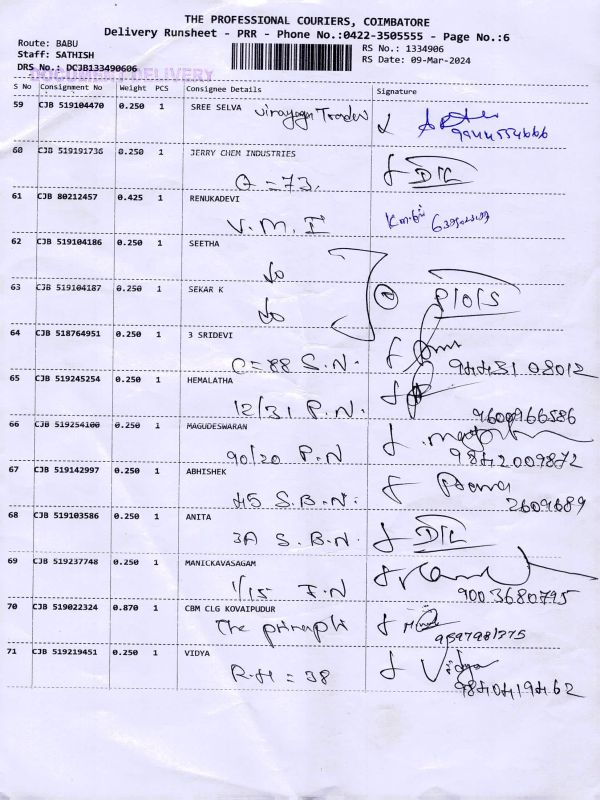 THE PROFESSIONAL COURIERS, COIMBATORE
Delivery Runsheet - PRR - Phone No.:0422-3505555 - Page No.:6
Route: BABU
RS No.: 1334906
Staff: SATHISH
RS Date: 09-Mar-2024
DRS No.: DCJB133490606
DOCUMENT DELIVERY
S No Consignment No Weight PCS Consignee Details Signature
59 CJB 519104470 0.250 1 SREE SELVA Vinayaga Traders
9944554666
60 CJB 519191736 0.250 1 JERRY CHEM INDUSTRIES
G = 73.
61 CJB 80212457 0.425 1 RENUKADEVI
V. M. I
62 CJB 519104186 0.250 1 SEETHA
do
63 CJB 519104187 0.250 1 SEKAR K
do
64 CJB 518764951 0.250 1 3 SRIDEVI
C = 88 S. N. 94431 08012
65 CJB 519245254 0.250 1 HEMALATHA
12/31 P. N. 9600966586
66 CJB 519254100 0.250 1 MAGUDESWARAN
90/20 P. N 9842009872
67 CJB 519142997 0.250 1 ABHISHEK
45 S. B. N. 2604689
68 CJB 519103586 0.250 1 ANITA
3A S. B. N.
69 CJB 519237748 0.250 1 MANICKAVASAGAM
1/15 I. N 9003680795
70 CJB 519022324 0.870 1 CBM CLG KOVAIPUDUR
The 9597981775
71 CJB 519219451 0.250 1 VIDYA Vidya
R. H = 38 9840419462